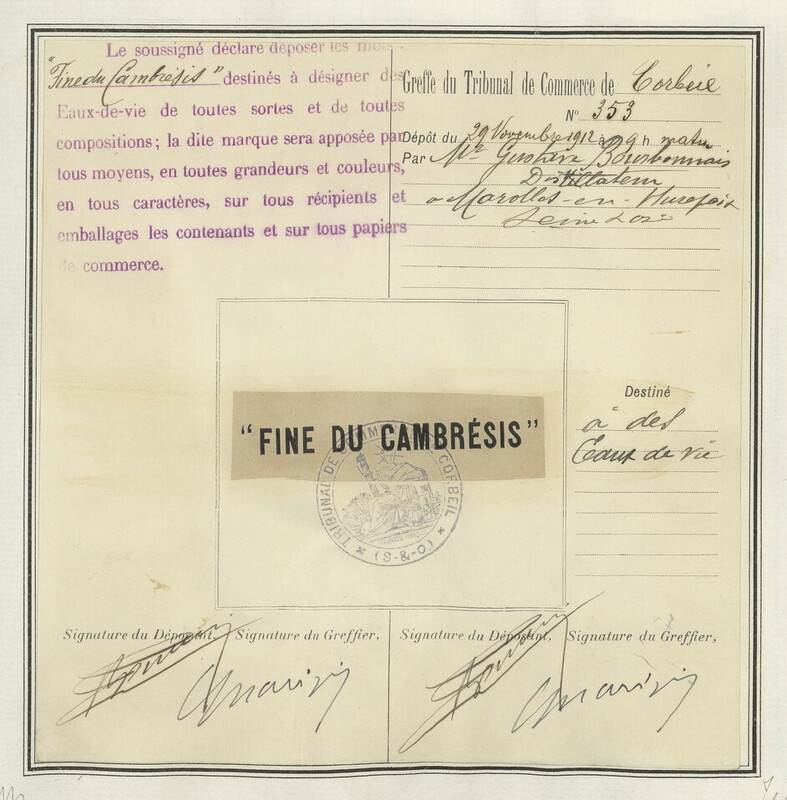 Le soussigné déclare déposer les mots
"Fine du Cambrésis" destinés à désigner des
Eaux-de-vie de toutes sortes et de toutes
compositions; la dite marque sera apposée par
tous moyens, en toutes grandeurs et couleurs,
en tous caractères, sur tous récipients et
emballages les contenants et sur tous papiers
de commerce.
Greffe du Tribunal de Commerce de Corbeil
N° 353
Dépôt du 29 Novembre 1912 à 9 h matin
Par Mr Bourbonnais
Distillateur
à Marolles-en-Hurepoix
Seine & Oise
"FINE DU CAMBRÉSIS"
TRIBUNAL DE COMMERCE DE CORBEIL
(S-&-O)
Destiné
à des
Eaux de vie
Signature du Déposant, Signature du Greffier,
Signature du Déposant, Signature du Greffier,